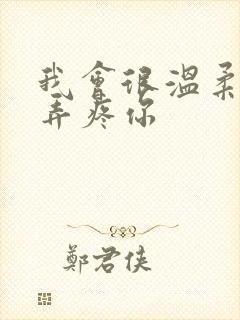 我會很溫柔
弄疼你
鄭君俠